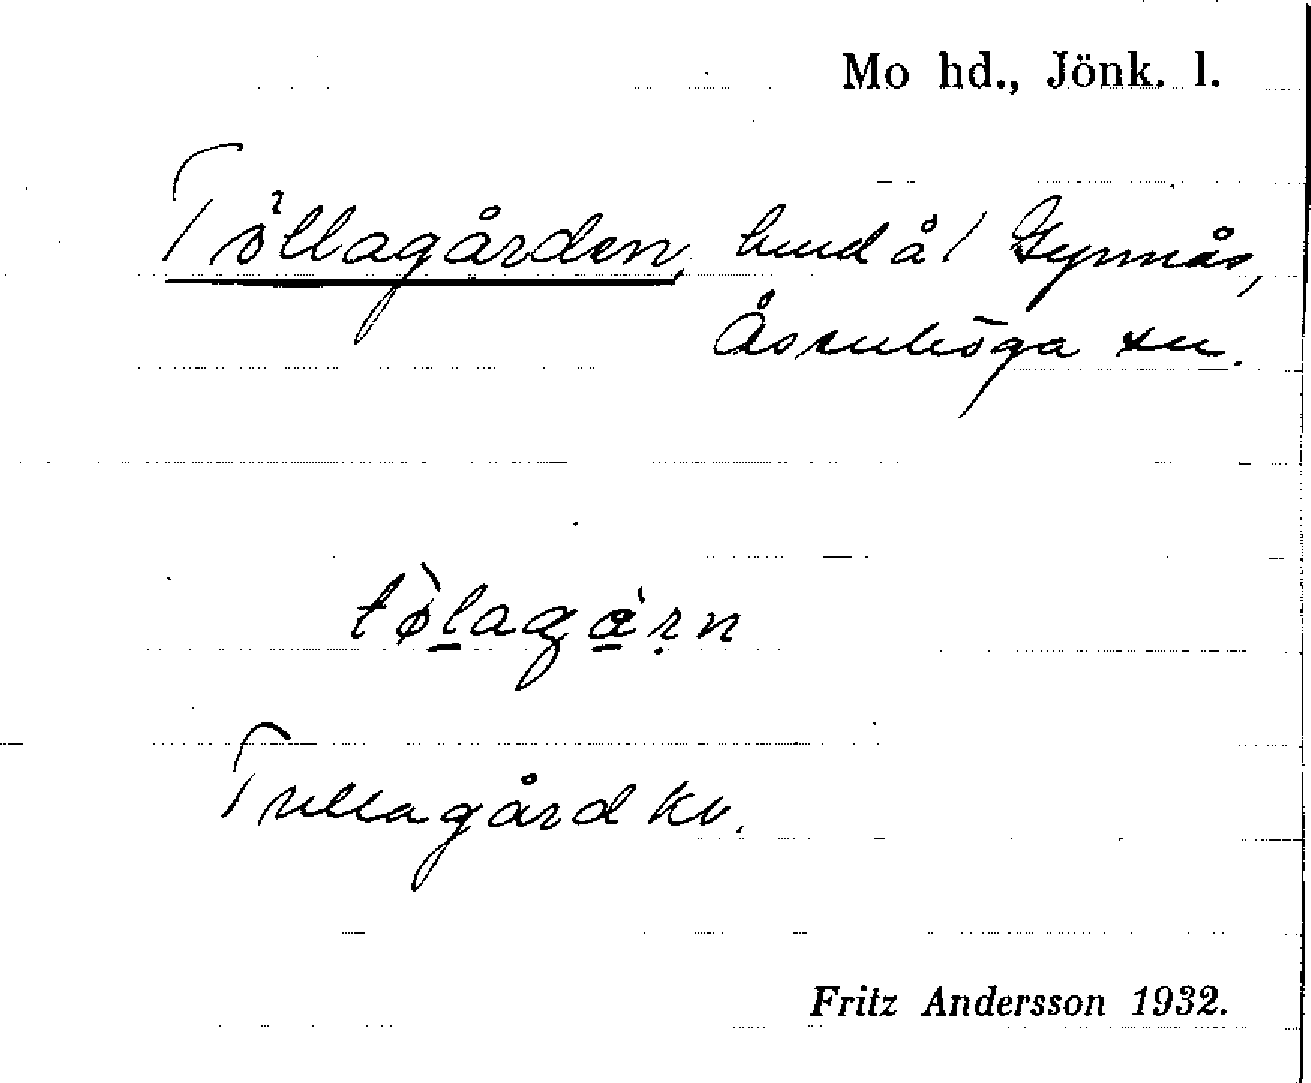 Mo hd., Jönk. l.
Töllagården, hmd å
Åsenhöga sn.
tø̀lagàrn
Tullagård kv.
Fritz Andersson 1932.